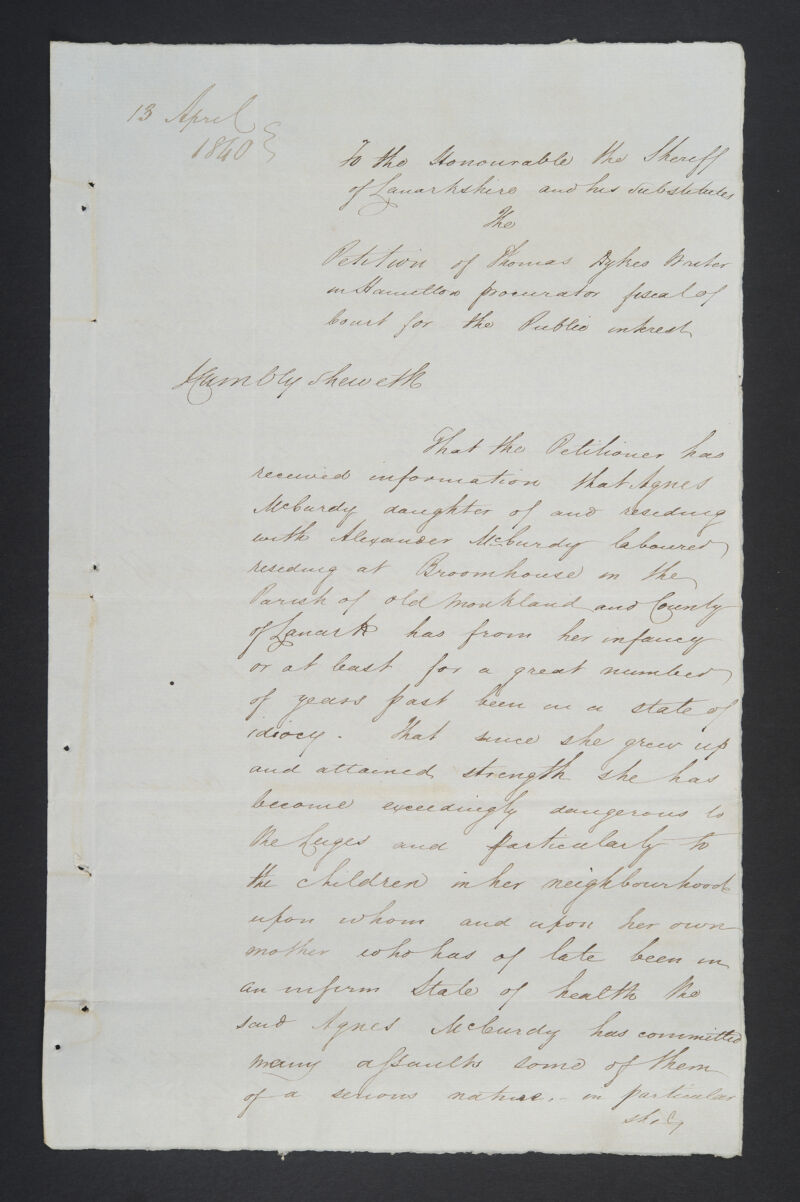 13 April
1840
To the Honourable the Sheriff
of Lanarkshire and his Substitutes
The
Petition of Thomas Dykes Writer
in Hamilton procurator fiscal of
Court for the Public interest
Humbly Sheweth
That the Petitioner has
received information that Agnes
McCurdy daughter of and reseding
with Alexander McCurdy labourer
reseding at Broomhouse in the
Parish of Old Monkland and County
of Lanark has from her infancy
or at least for a great number
of years past been in a state of
idiocy. That since she grew up
and attained strength she has
become exceedingly dangerous to
the Leiges and particularly to
the children in her neighbourhood
upon whom and upon her own
mother who has of late been in
an infirm State of health the
said Agnes McCurdy has committed
many assaults some of them
of a serious nature. - in particular
she